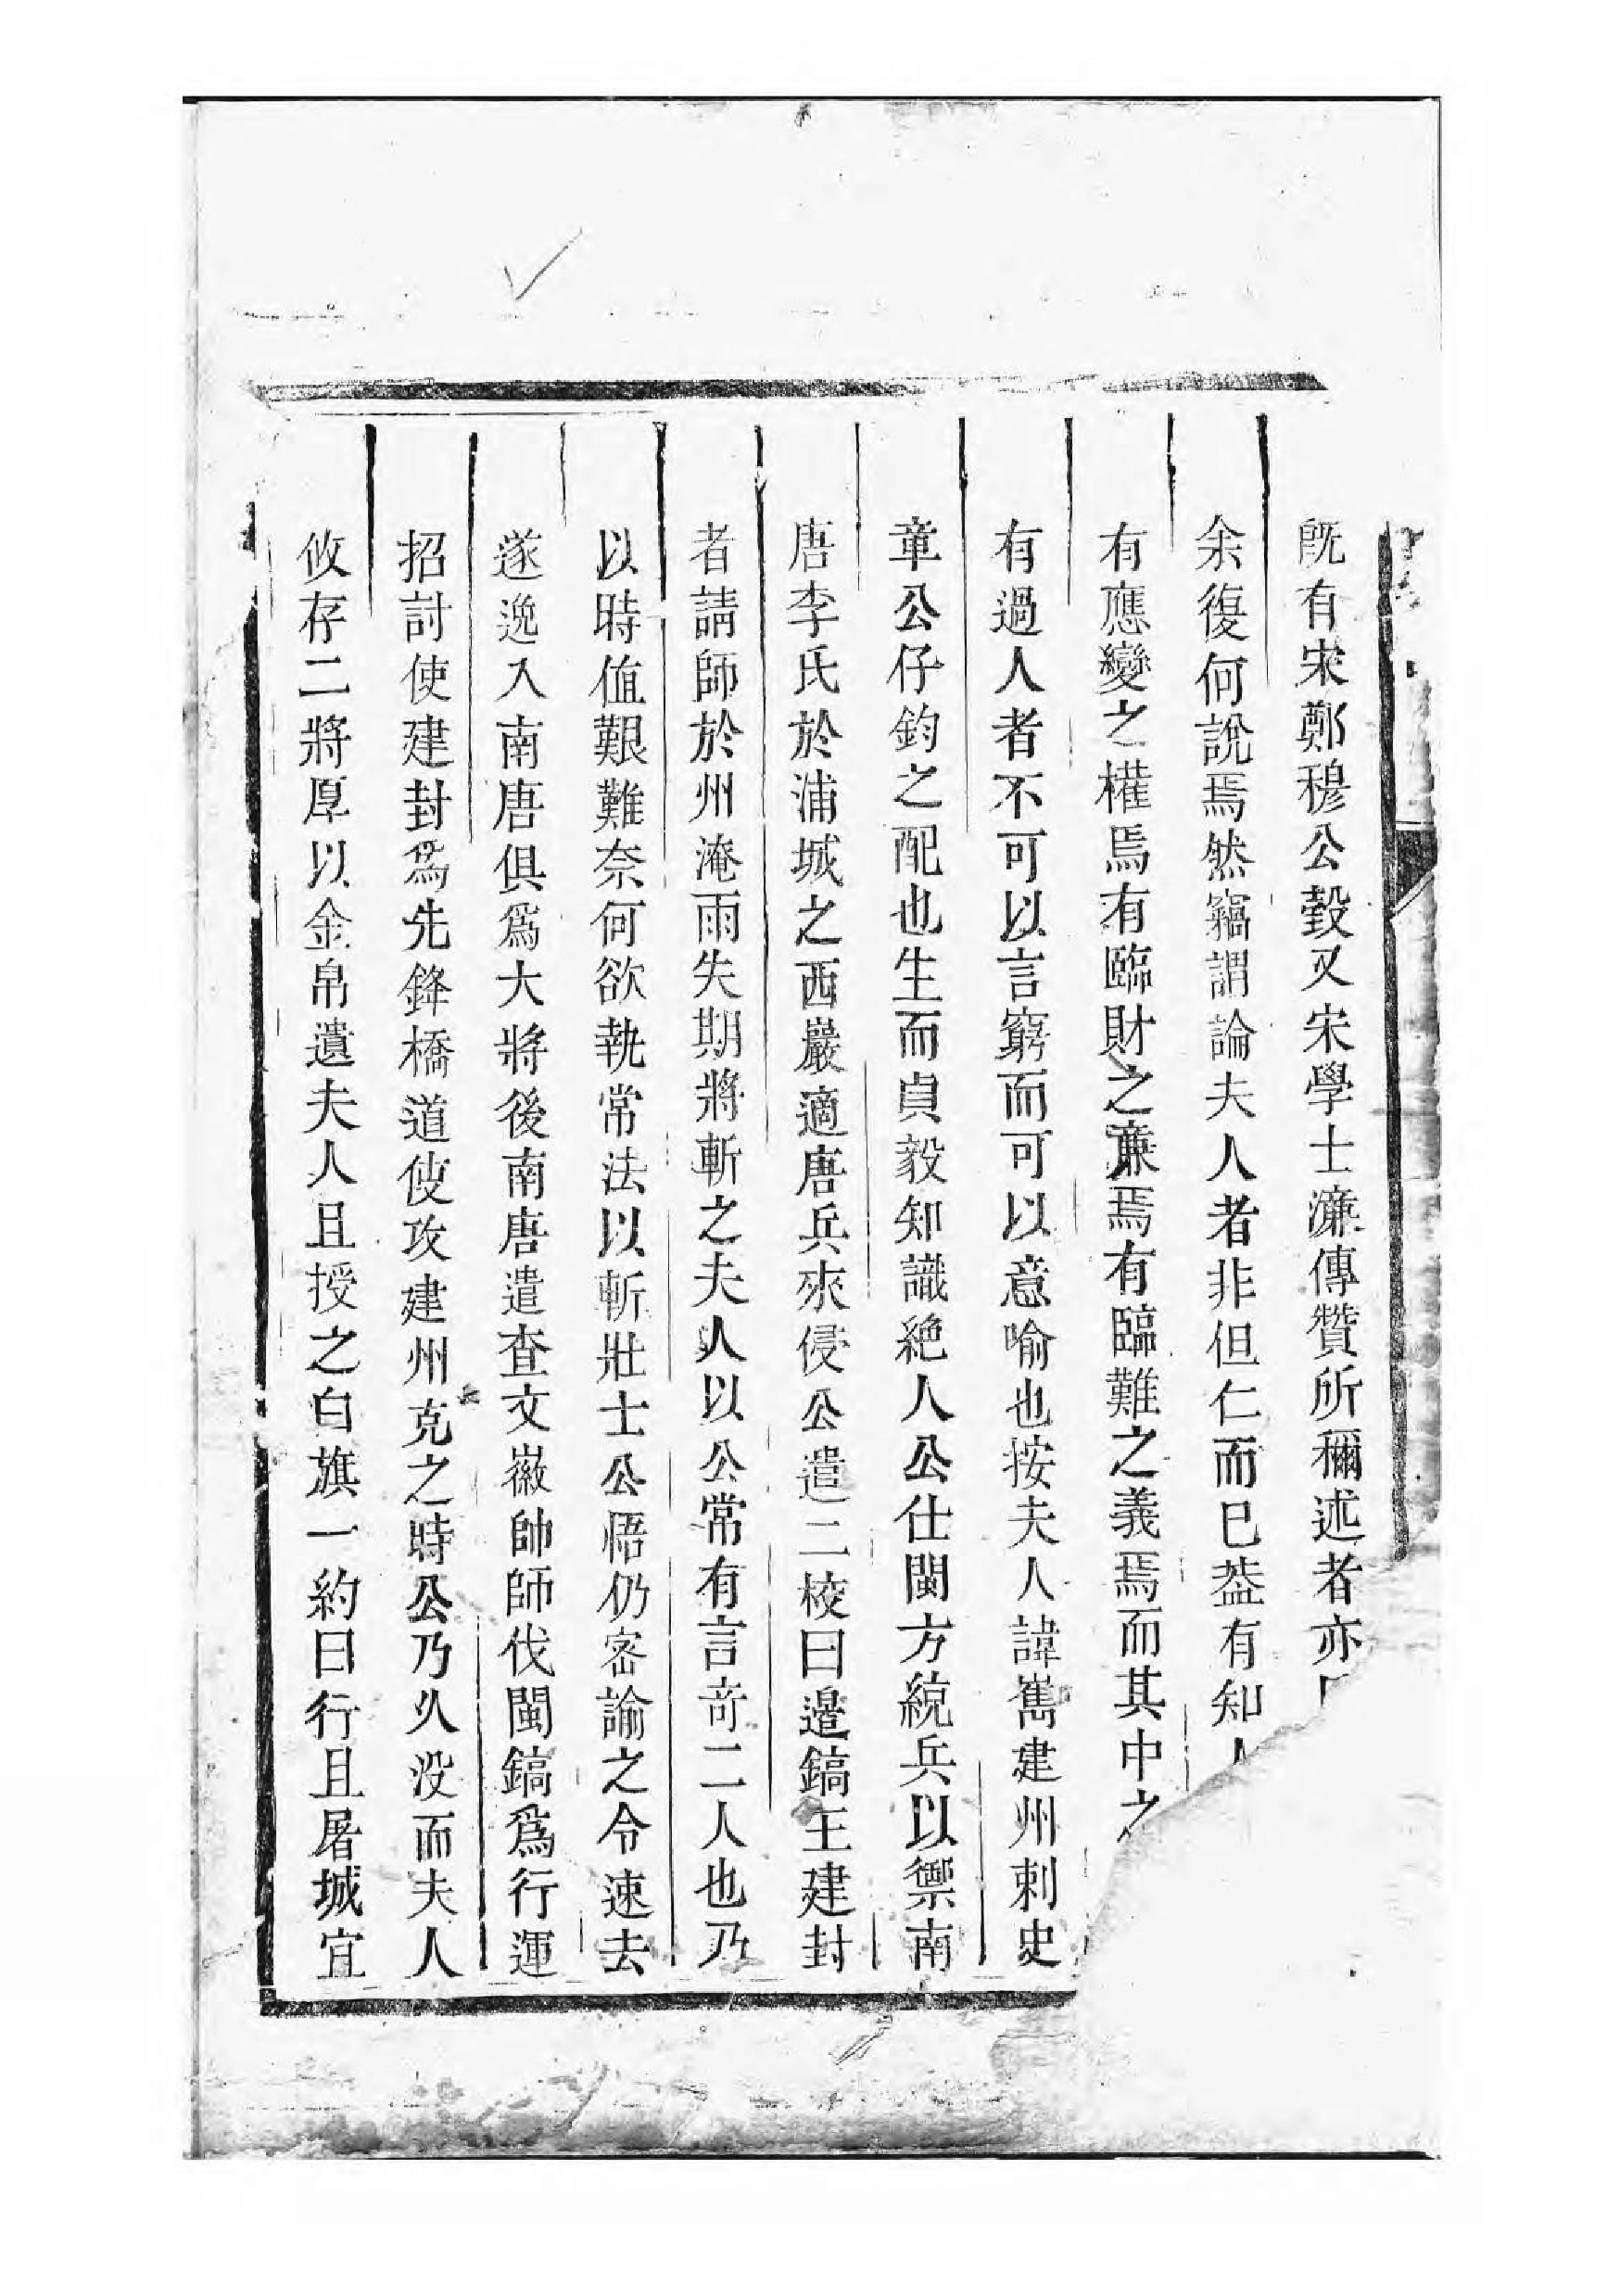 既有宋鄭穆公瑴又宋學士濂傳贊所稱述者亦
余復何說焉然竊謂論夫人者非但仁而已葢有知人
有應變之權焉有臨財之廉焉有臨難之義焉而其中之
有過人者不可以言窮而可以意喻也按夫人諱雋建州刺史
章公仔鈞之配也生而貞毅知識絶人公仕閩方統兵以禦南
唐李氏於浦城之西巖適唐兵來侵公遣二校曰邉鎬王建封
者請師於州淹雨失期將斬之夫人以公常有言竒二人也乃
以時値艱難奈何欲執常法以斬壯士公悟仍密諭之令速去
遂逸入南唐俱爲大將後南唐遣查文徽帥師伐閩鎬爲行運
招討使建封爲先鋒橋道使攻建州克之時公乃久沒而夫人
攸存二將厚以金帛遺夫人且授之白旗一約曰行且屠城宜